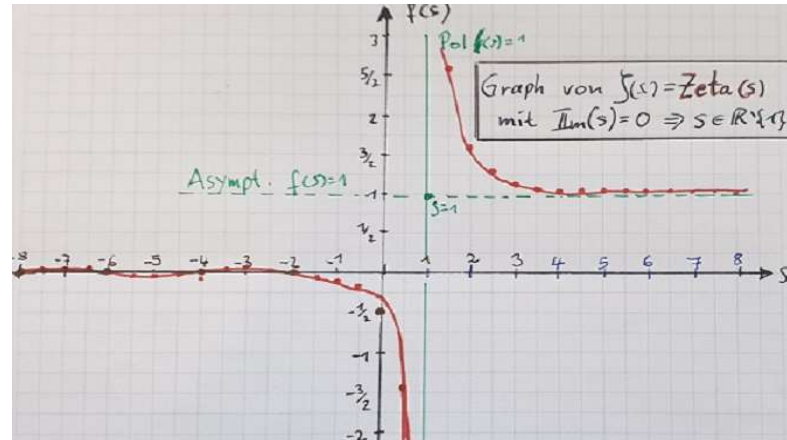 f(s)
Pol f(s)=1
Graph von ζ(s)=Zeta(s)
mit Im(s)=0 ⇒ s∈ℝ\{1}
Asympt. f(s)=1
s=1
3
5/2
2
3/2
1
1/2
-8 -7 -6 -5 -4 -3 -2 -1 1 2 3 4 5 6 7 8 s
-1/2
-1
-3/2
-2